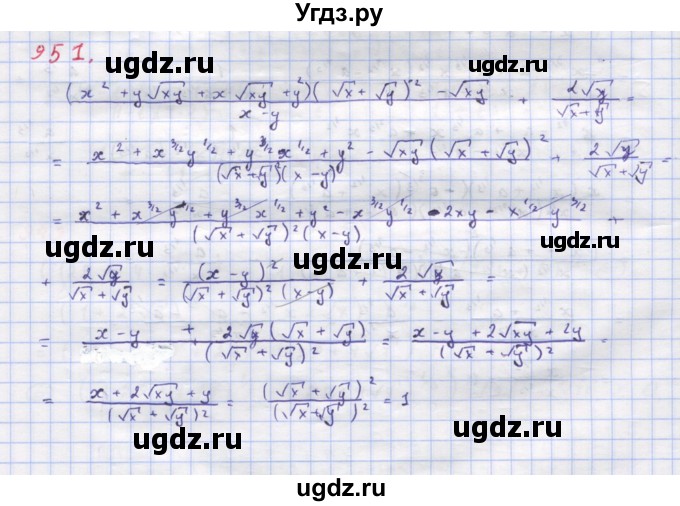 Угдз.ру
951.
ugdz.ru ugdz.ru
(x² + y√xy + x√xy + y²)(√x + √y)⁻² − √xy / x − y + 2√y / √x + √y =
= x² + x^3/2 y^1/2 + y^3/2 x^1/2 + y² − √xy (√x + √y)² / (√x + √y)²(x − y) + 2√y / √x + √y =
ugdz.ru ugdz.ru
= x² + x^3/2 y^1/2 + y^3/2 x^1/2 + y² − x^3/2 y^1/2 − 2xy − x^1/2 y^3/2 / (√x + √y)²(x − y) +
ugdz.ru ugdz.ru
+ 2√y / √x + √y = (x − y)² / (√x + √y)² (x − y) + 2√y / √x + √y =
ugdz.ru ugdz.ru
= x − y + 2√y (√x + √y) / (√x + √y)² = x − y + 2√xy + 2y / (√x + √y)² =
= x + 2√xy + y / (√x + √y)² = (√x + √y)² / (√x + √y)² = 1
ugdz.ru ugdz.ru
ugdz.ru